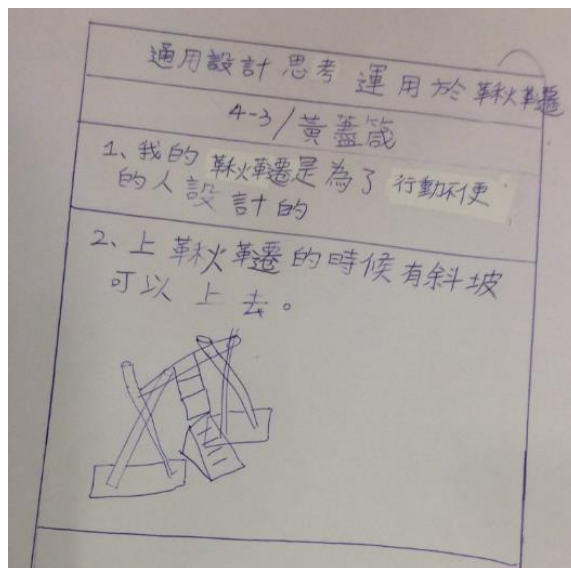 通用設計思考 運用於鞦韆
4-3/黃蓋箴
1、我的鞦韆是為了行動不便
的人設計的
2、上鞦韆的時候有斜坡
可以上去。